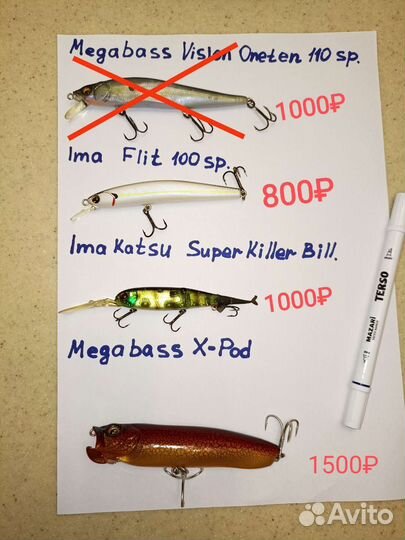 Megabass Vision Oneten 110 sp.
1000₽
Ima Flit 100 sp.
800₽
Ima Katsu Super Killer Bill.
1000₽
Megabass X-Pod
1500₽
MAZARI TERSO
Avito